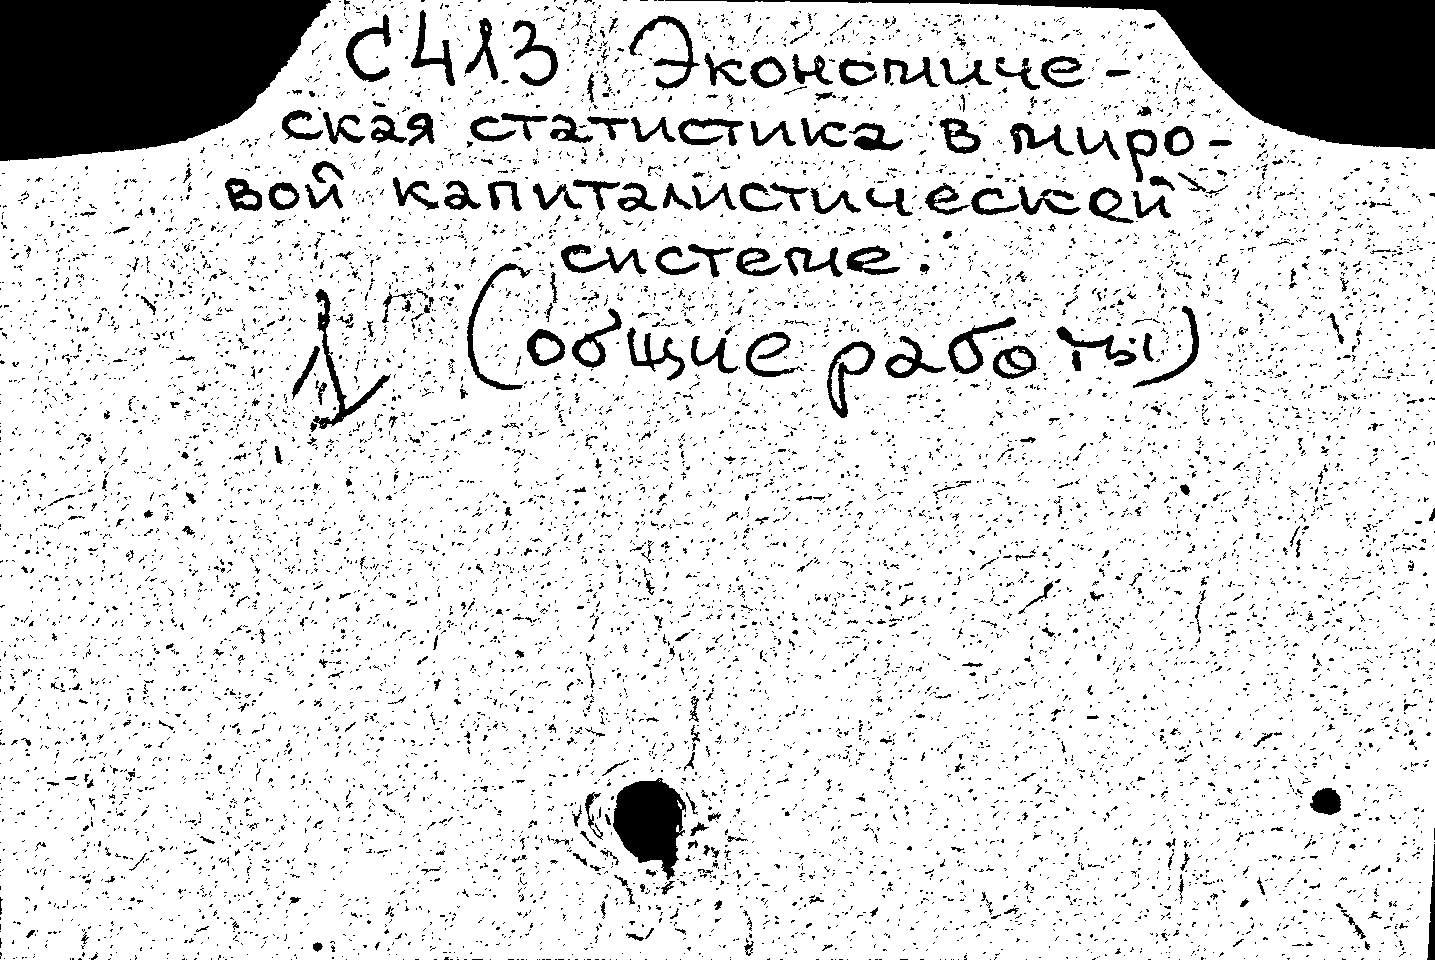 С41.3 Экономиче-
ская статистика в миро-
вой капиталистической
системе.
(общие работы)